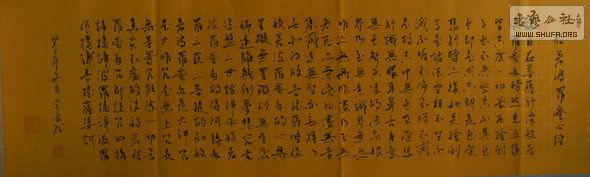 書藝公社
WWW.SHUFA.ORG
般若波羅蜜心經
觀自在菩薩行深般若
波羅蜜多時照見五蘊
皆空度一切苦厄舍利
子色不異空空不異色
色即是空空即是色受
想行識亦復如是舍利
子是諸法空相不生不
滅不垢不淨不增不減
是故空中無色無受想
行識無眼耳鼻舌身意
無色聲香味觸法無眼
界乃至無意識界無無
明亦無無明盡乃至無
老死亦無老死盡無苦
集滅道無智亦無得以
無所得故菩提薩埵依
般若波羅蜜多故心無
罣礙無罣礙故無有恐
怖遠離顛倒夢想究竟
涅槃三世諸佛依般若
波羅蜜多故得阿耨多
羅三藐三菩提故知般
若波羅蜜多是大神咒
是大明咒是無上咒是
無等等咒能除一切苦
真實不虛故說般若波
羅蜜多咒即說咒曰揭
諦揭諦波羅揭諦波羅
僧揭諦菩提薩婆訶